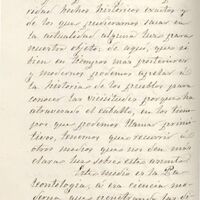 cidad hechos históricos exactos y
de los que pudieramos sacar en
la actualidad alguna luz para
nuestro objeto; de aquí, que si
bien en tiempos mas posteriores
y modernos podemos apelar a
la historia de los pueblos para
conocer las vicisitudes porque ha
atravesado el caballo, en los tiem-
pos que podemos llamar primi-
tivos, tenemos que recurrir a
otros medios que nos den mas
clara luz sobre este asunto.
Este medio es la Pa-
leontologia, esa ciencia mo-
derna que